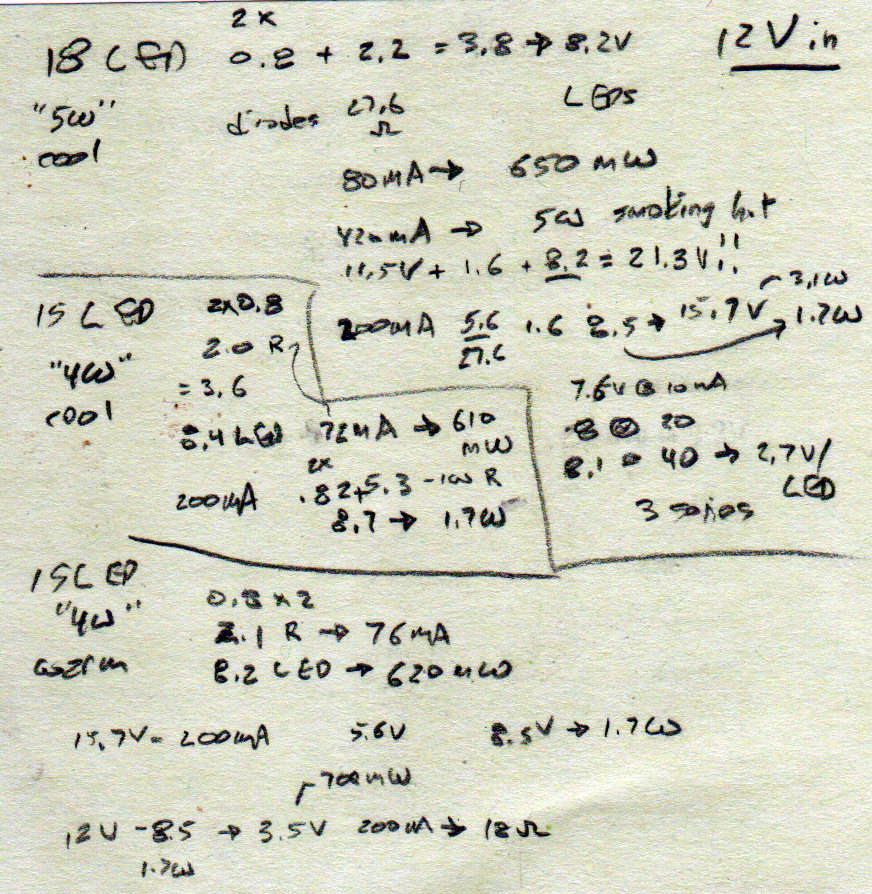 18 LED 2x 0.8 + 2.2 = 3.8 → 8.2V 12V in
"5W" diodes 27.6 Ω LEDs
cool
80mA → 650 mW
420mA → 5W smoking hot
11.5V + 1.6 + 8.2 = 21.3V!!
200mA 5.6 1.6 8.5 → 15.7V 3.1W
27.6 1.7W
15 LED 2x0.8
"4W" 2.0 R
cool = 3.6
8.4 LED 72mA → 610 mW
200mA 2x .82+5.3 -1W R
8.7 → 1.7W
7.6V @ 10mA
8 @ 20
8.1 @ 40 → 2.7V/LED
3 series
15 LED
"4W" 0.8 x 2
2.1 R → 76mA
warm 8.2 LED → 620 mW
15.7V = 200mA 5.6V 8.5V → 1.7W
700mW
12V - 8.5 → 3.5V 200mA → 18Ω
1.7W